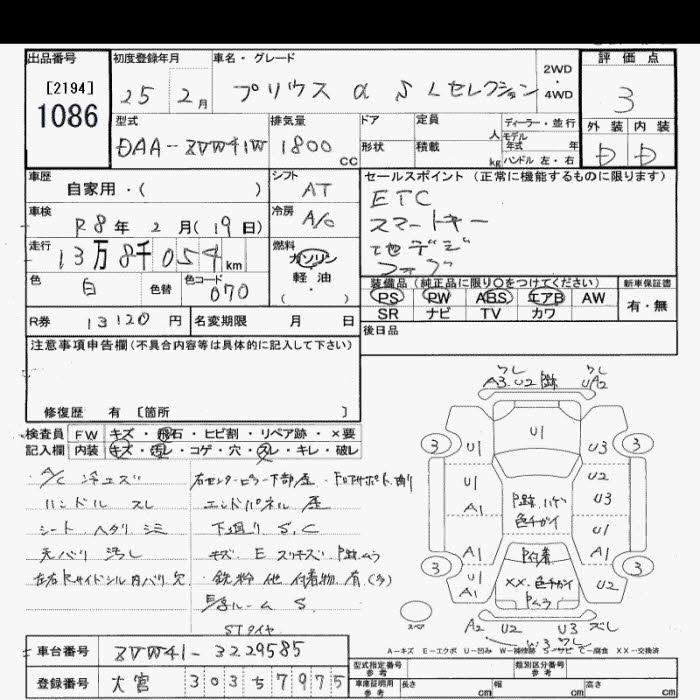 出品番号
[2194]
1086
初度登録年月
25 2月
車名・グレード
プリウス α S Lセレクション
2WD
・
4WD
評価点
3
型式
DAA-ZVW41W
排気量
1800
cc
ドア
形状
定員
人
積載
kg
ディーラー・並行
モデル
年式 年
ハンドル 左・右
外装 内装
D D
車歴
自家用・( )
シフト
AT
車検
R8年 2月(19日)
冷房
A/C
走行
13万8千054km
燃料
ガソリン
軽油
(・)
色
白
色替
色コード
070
R券
13120円
名変期限 月 日
セールスポイント(正常に機能するものに限ります)
ETC
スマートキー
地デジ
フォグ
装備品(純正品に限り○をつけてください)
PS PW ABS エアB AW
SR ナビ TV カワ
新車保証書
有・無
後日品
注意事項申告欄(不具合内容等は具体的に記入して下さい)
修復歴 有 [箇所 ]
検査員
記入欄
FW キズ・飛石・ヒビ割・リペア跡・×要
内装 キズ・汚レ・コゲ・穴・スレ・キレ・破レ
A/C 冷エズ
ハンドル スレ
シート ヘタリ シミ
天バリ 汚レ
左右Rサイドシル内バリ欠
右センターピラー下部歪
エンドパネル 歪
下廻り S,C
キズ E スリキズ P跡ムラ
鉄粉 他 付着物 有(多)
S.
STタイヤ
ズレ
A3 U2 P跡
ズレ
UA2
U1
3
U1
U3
3
U1
A1
U2
U3
P跡 ハゲ
色チガイ
U1
3
A1
P付着
A1
3
U1
A1
XX.色チガイ
Pムラ
U2
スペア
A2 U2
W3
U3 ズレ
A-キズ E-エクボ U-凹み W-補修跡 S-サビ C-腐食 XX-交換済
車台番号
ZVW41-3229585
登録番号
大宮 303 5 7975
型式指定番号
参考
類別区分番号
参考
車庫証明用
参考
長さ cm
幅 cm
高さ cm